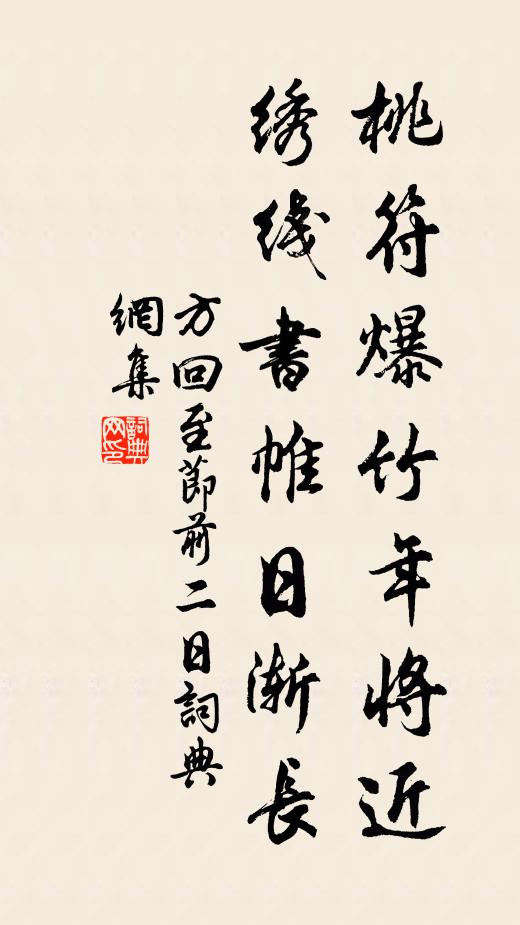 桃符爆竹年將近
绣线書帷日漸長
方回至節前二日詞典
網集
詞典网印